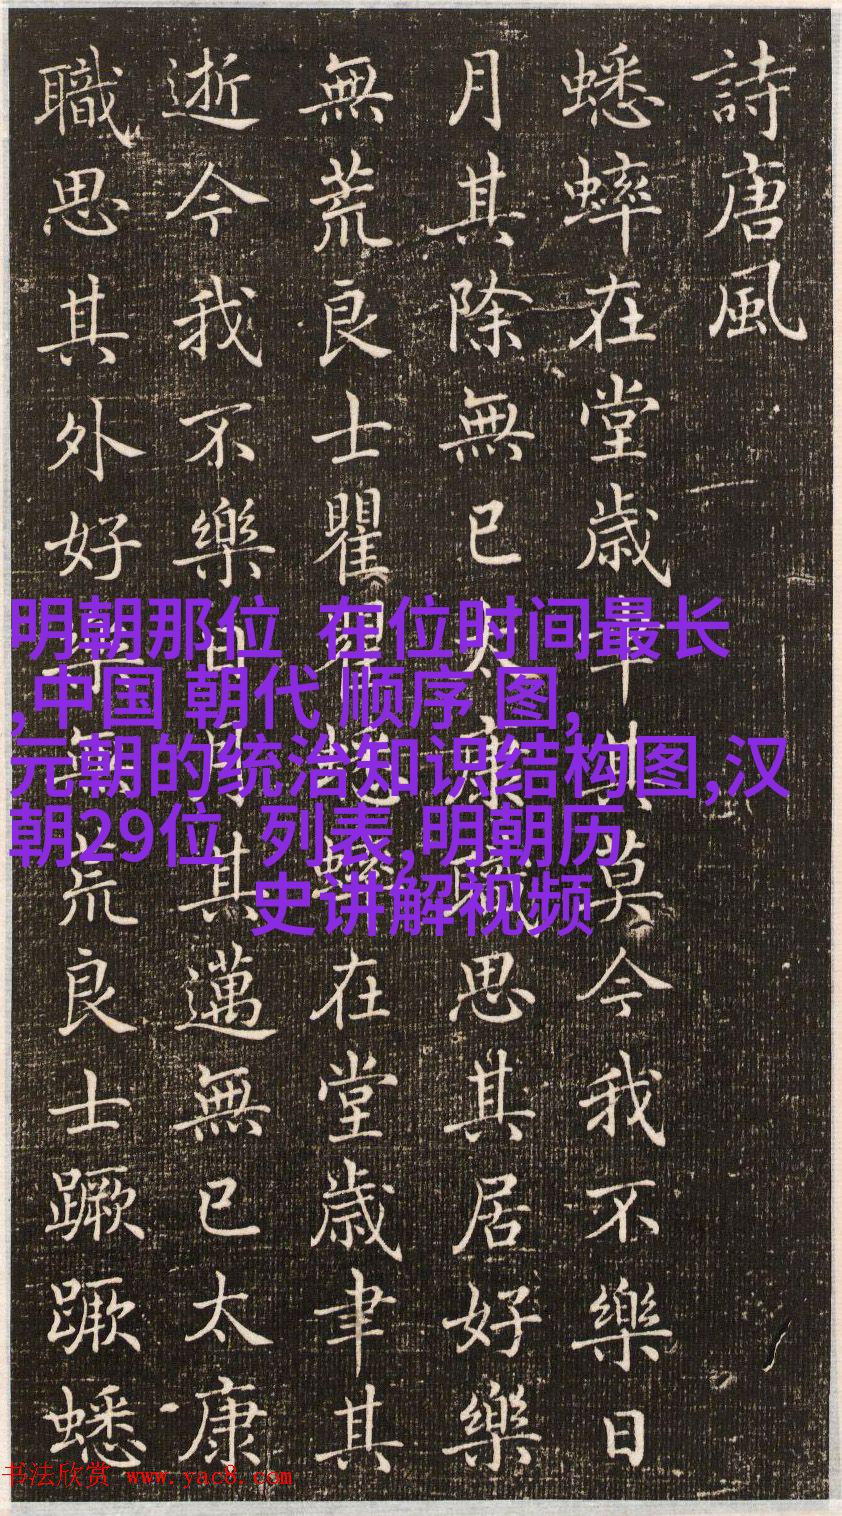 詩唐風
蟋蟀在堂歳聿其莫今我不樂日
月其除無已大康職思其居好樂
無荒良士瞿瞿蟋蟀在堂歳聿其
逝今我不樂日月其邁無已太康
職思其外好樂無荒良士蹶蹶蟋
明朝那位 在位时间最长
,中国 朝代 顺序 图,
元朝的统治知识结构图,汉
朝29位 列表,明朝历
史讲解视频
书法欣赏 www.yac8.com